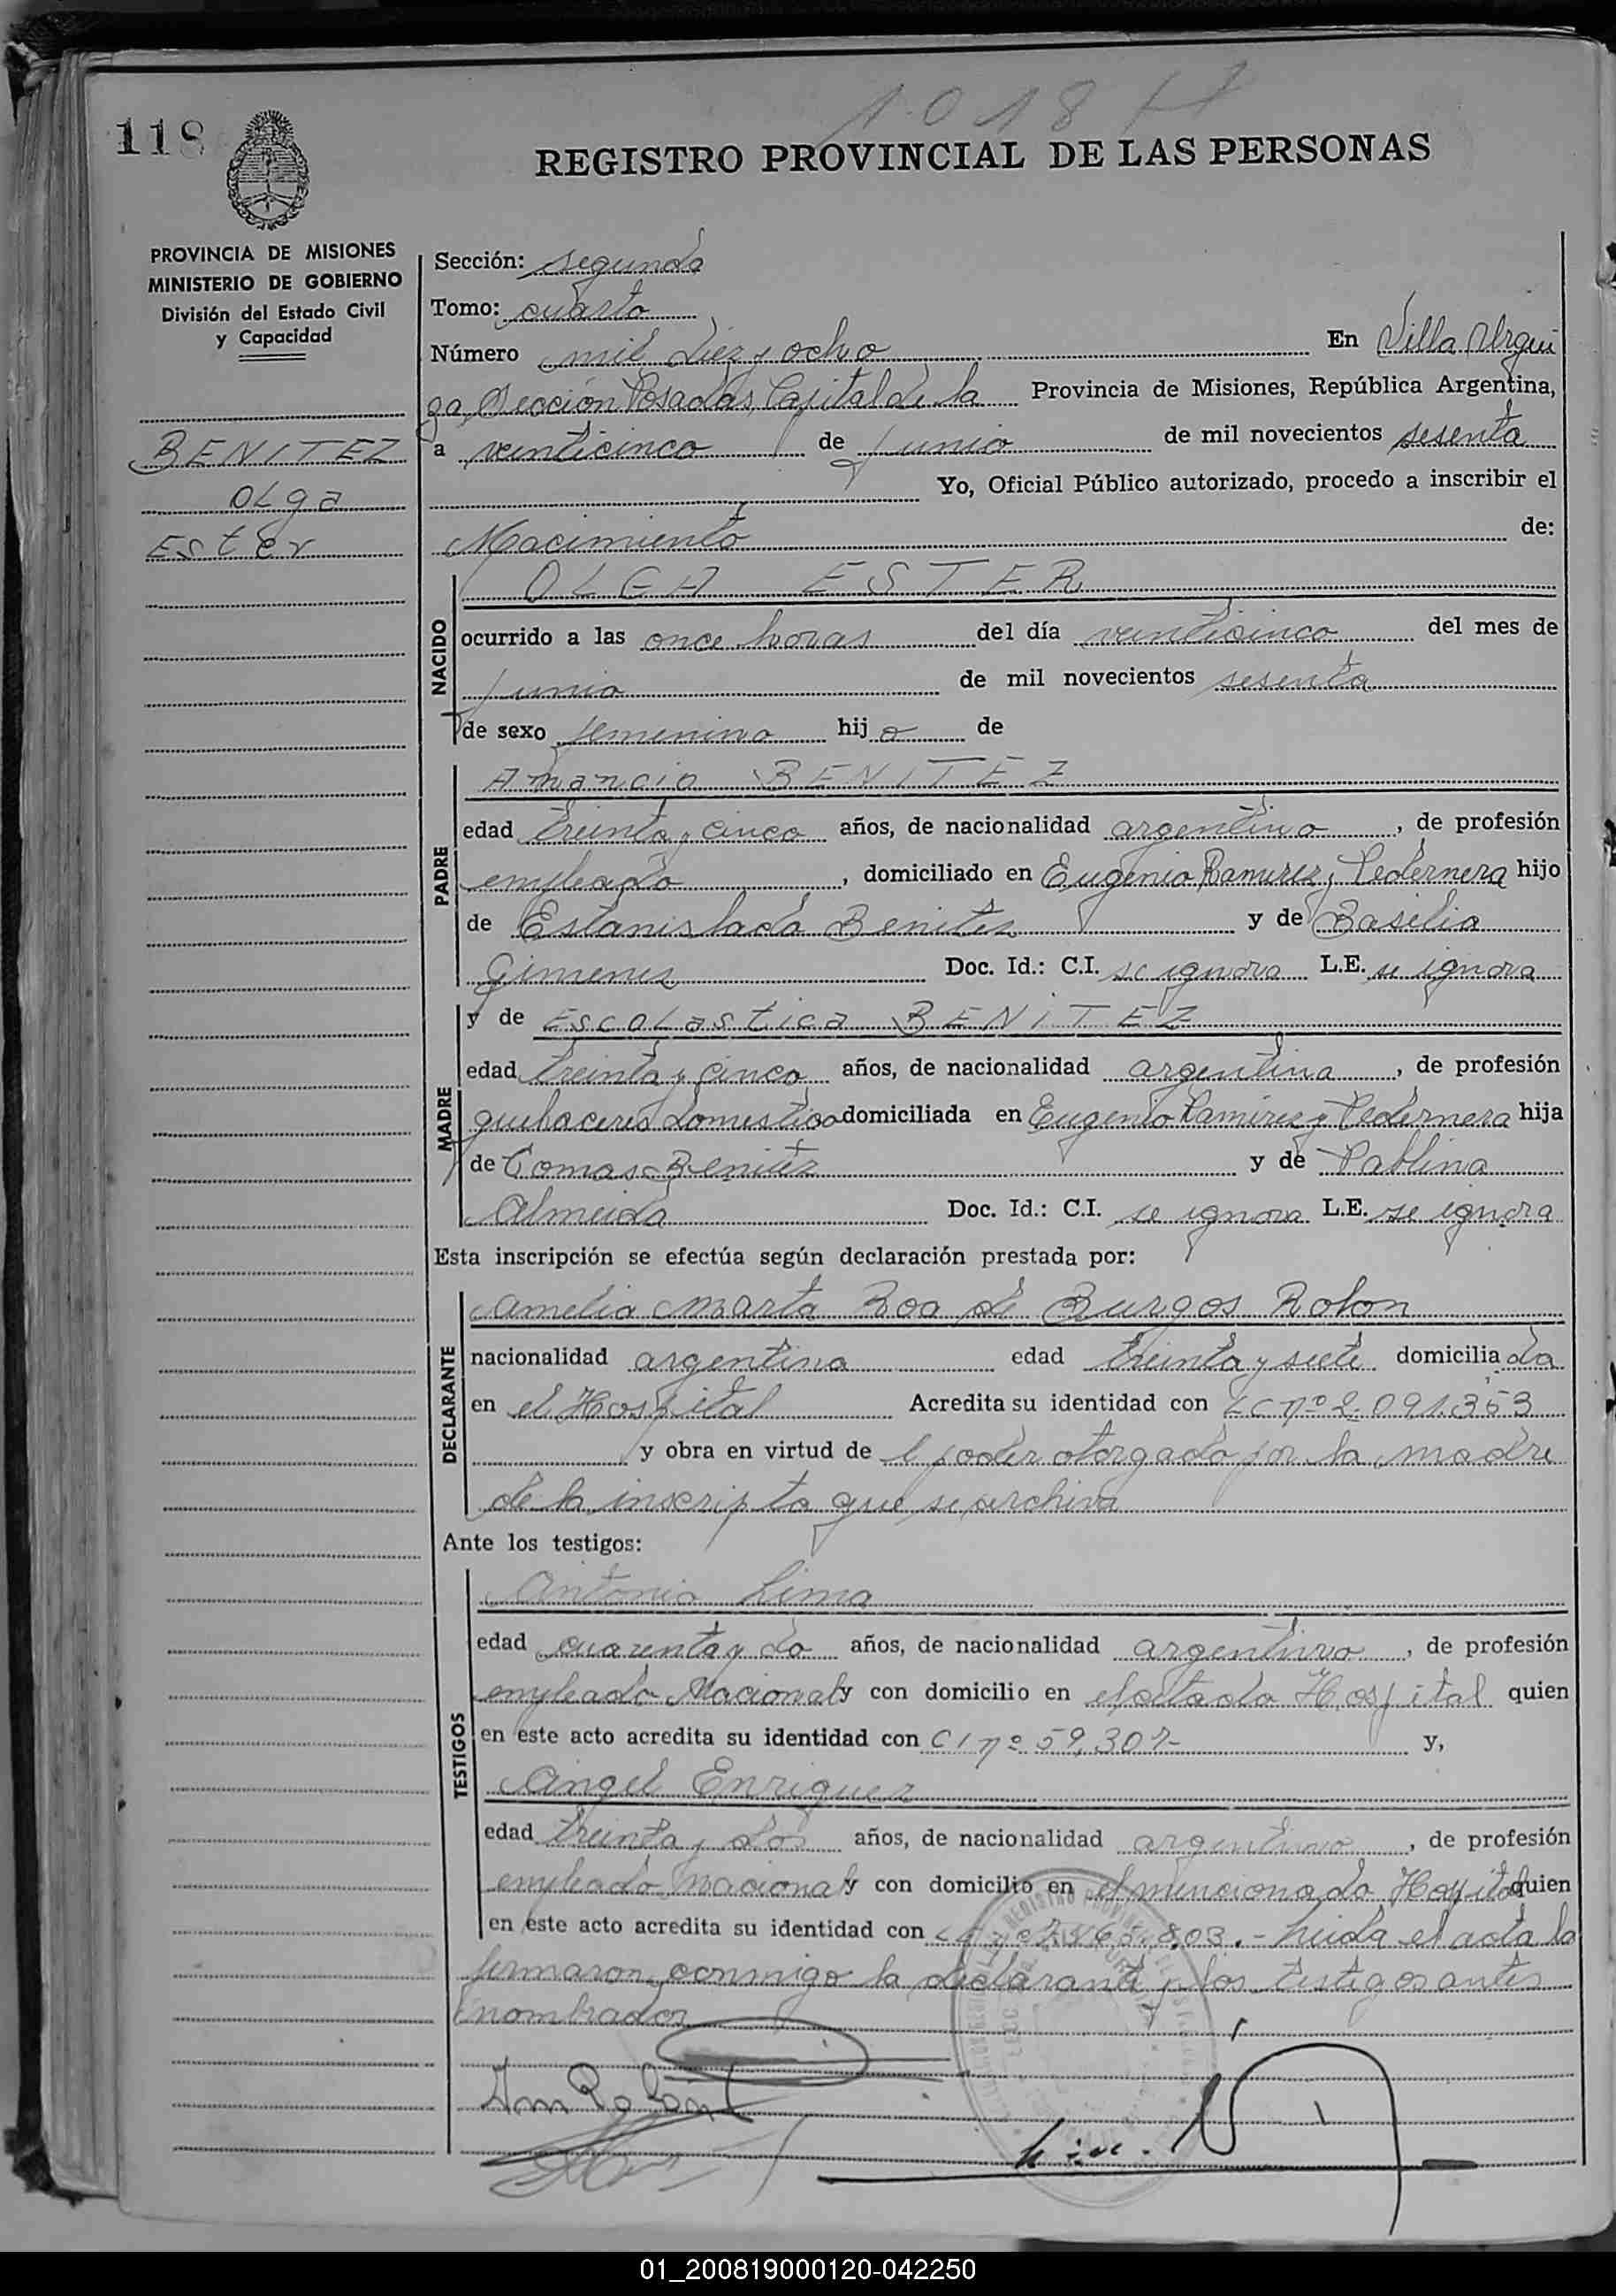 1018
118
REGISTRO PROVINCIAL DE LAS PERSONAS
PROVINCIA DE MISIONES
MINISTERIO DE GOBIERNO
División del Estado Civil
y Capacidad
BENITEZ
OLga
Ester
Sección: segunda
Tomo: cuarto
Número mil diez y ocho En Villa Urqui
za, Sección Posadas, Capital de la Provincia de Misiones, República Argentina,
a veinticinco de junio de mil novecientos sesenta
Yo, Oficial Público autorizado, procedo a inscribir el
Nacimiento de:
NACIDO
OLGA ESTER
ocurrido a las once horas del día veinticinco del mes de
junio de mil novecientos sesenta
de sexo femenino hij a de
PADRE
Amancio BENITEZ
edad treinta y cinco años, de nacionalidad argentino, de profesión
empleado, domiciliado en Eugenio Ramirez y Pedernera hijo
de Estanislada Benitez y de Basilia
Gimenez Doc. Id.: C.I. se ignora L.E. se ignora
MADRE
y de EscoLastica BENITEZ
edad treinta y cinco años, de nacionalidad argentina, de profesión
quehaceres domestico domiciliada en Eugenio Ramirez y Pedernera hija
de Tomas Benitez y de Pablina
Almeida Doc. Id.: C.I. se ignora L.E. se ignora
Esta inscripción se efectúa según declaración prestada por:
DECLARANTE
Amelia Marta Roa de Burgos Rolon
nacionalidad argentina edad treinta y siete domicilia da
en el Hospital Acredita su identidad con LC nº 2.091.353
y obra en virtud de l poder otorgado por la madre
de la inscripta que se archiva
Ante los testigos:
TESTIGOS
Antonio Lima
edad cuarenta y do años, de nacionalidad argentino, de profesión
empleado Nacional y con domicilio en el citado Hospital quien
en este acto acredita su identidad con CI nº 59.307- y,
Angel Enriquez
edad treinta y dos años, de nacionalidad argentino, de profesión
empleado nacional y con domicilio en el mencionado Hospital quien
en este acto acredita su identidad con .- Leida el acta la
firmaron conmigo la declarante y los testigos antes
nombrados
01_200819000120-042250